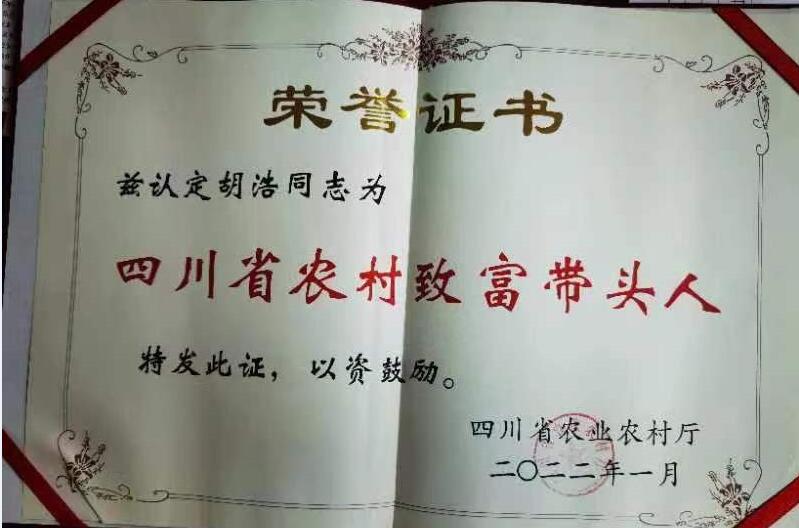 荣誉证书
兹认定胡浩同志为
四川省农村致富带头人
特发此证，以资鼓励。
四川省农业农村厅
二〇二二年一月